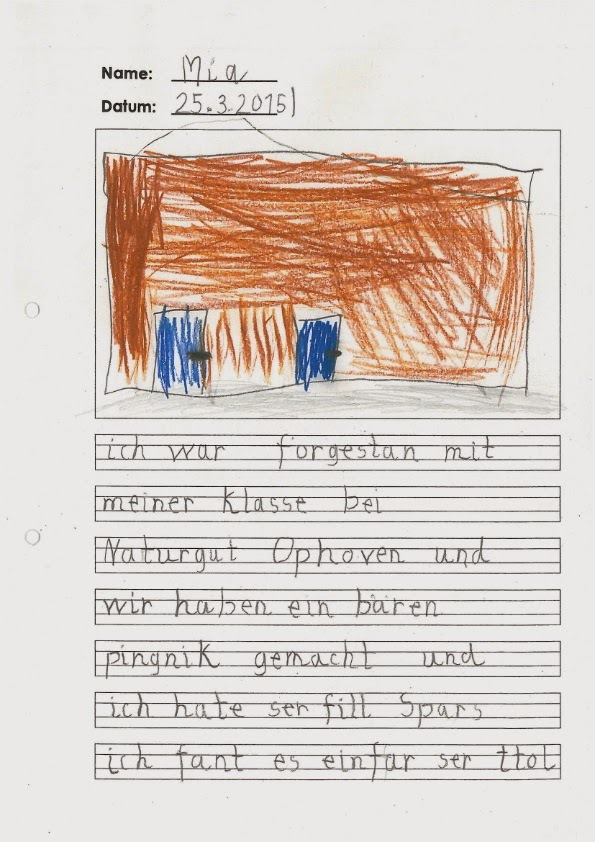 Name: Mia
Datum: 25.3.2015
ich war forgestan mit
meiner klasse bei
Naturgut Ophoven und
wir haben ein bären
pingnik gemacht und
ich hate ser fill Spars
ich fant es einfar ser ttol